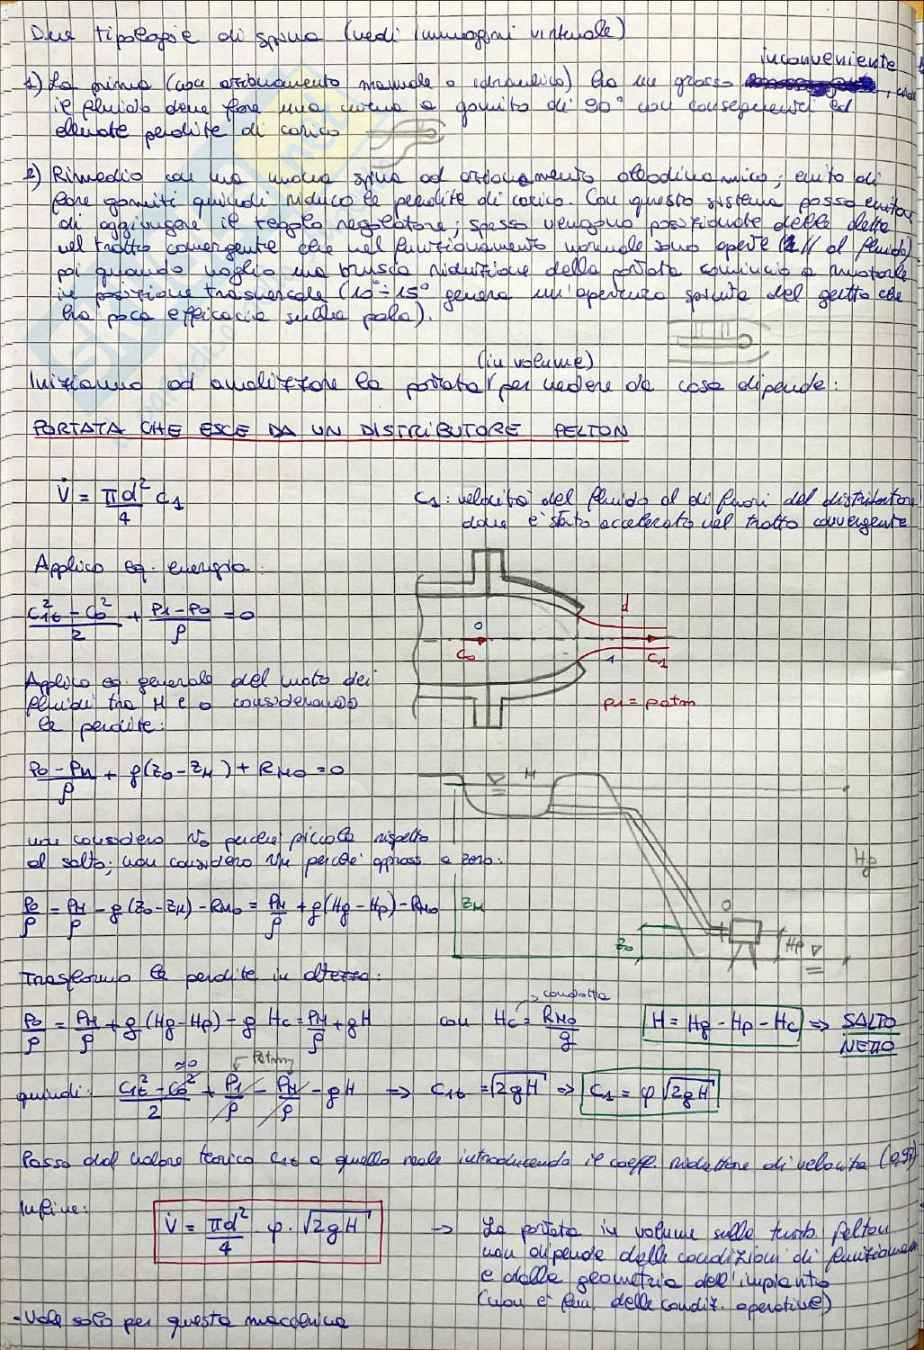 Due tipologie di spina (vedi immagini virtuale)
inconveniente
1) La prima (con azionamento manuale o idraulico) ha un grosso
il fluido deve fare una curva a gomito di 90° con conseguenti ed
elevate perdite di carico
2) Rimedio con una nuova spina ad azionamento oleodinamico; evito di
fare gomiti quindi riduco le perdite di carico. Con questo sistema posso evitare
di aggiungere il tegolo regolatore, spesso vengono posizionate delle alette
nel tratto convergente che nel funzionamento normale sono aperte (// al fluido)
poi quando voglio una brusca riduzione della portata comincio a ruotarle
in posizione trasversale (10°÷15° genera un'apertura spinta del getto che
ha poca efficacia sulla pala).
(in volume)
Iniziamo ad analizzare la portata per vedere da cosa dipende:
PORTATA CHE ESCE DA UN DISTRIBUTORE PELTON
V̇ = πd²/4 c₁
c₁: velocità del fluido al di fuori del distributore
dove è stato accelerato nel tratto convergente
Applico eq. energia:
(c₁t² - c₀²)/2 + (p₁ - p₀)/ρ = 0
d
0
c₀
1
c₁
p₁ = patm
Applico eq. generale del moto dei
fluidi tra M e 0 considerando
le perdite:
(p₀ - pM)/ρ + g(z₀ - zM) + RM0 = 0
M
Hg
non considero v₀ perché piccola rispetto
al salto; non considero vM perché appross a zero.
p₀/ρ = pM/ρ - g(z₀ - zM) - RM0 = pM/ρ + g(Hg - Hp) - RM0
zM
0
z₀
Hp
Trasformo le perdite in altezza:
condotta
p₀/ρ = pM/ρ + g(Hg - Hp) - g Hc = pM/ρ + gH con Hc = RM0/g H = Hg - Hp - Hc ⇒ SALTO
NETTO
≈0
Patm
quindi: (c₁t² - c₀²)/2 + p₁/ρ - pM/ρ - gH → c₁t = √2gH ⇒ c₁ = φ √2gH
Passo dal valore teorico c₁t a quello reale introducendo il coeff. riduttore di velocità
Infine:
V̇ = πd²/4 · φ · √2gH → La portata in volume sulla turb Pelton
non dipende dalle condizioni di funzionam
e dalla geometria dell'impianto
(non è fun. delle condiz. operative)
- Vale solo per questa macchina